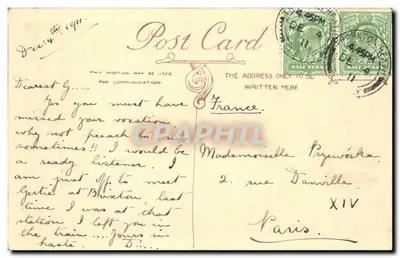 Dec: 4th 1911.
Post Card
THIS PORTION MAY BE USED
FOR COMMUNICATION
THE ADDRESS ONLY TO BE
WRITTEN HERE
4.45PM
DE 4
11
4.45PM
DE 4
11
HALF PENNY
HALF PENNY
Dearest G....
Yes you must have
missed your vocation
why not preach to me
sometimes!! I would be
a ready listener. I
am just off to meet
Gertie at Brixton, last
time I was at that
station I left you in
the train .... Yours in
haste D:..
France.
CPARHIL
Mademoiselle
2 rue Danville
XIV
Paris.